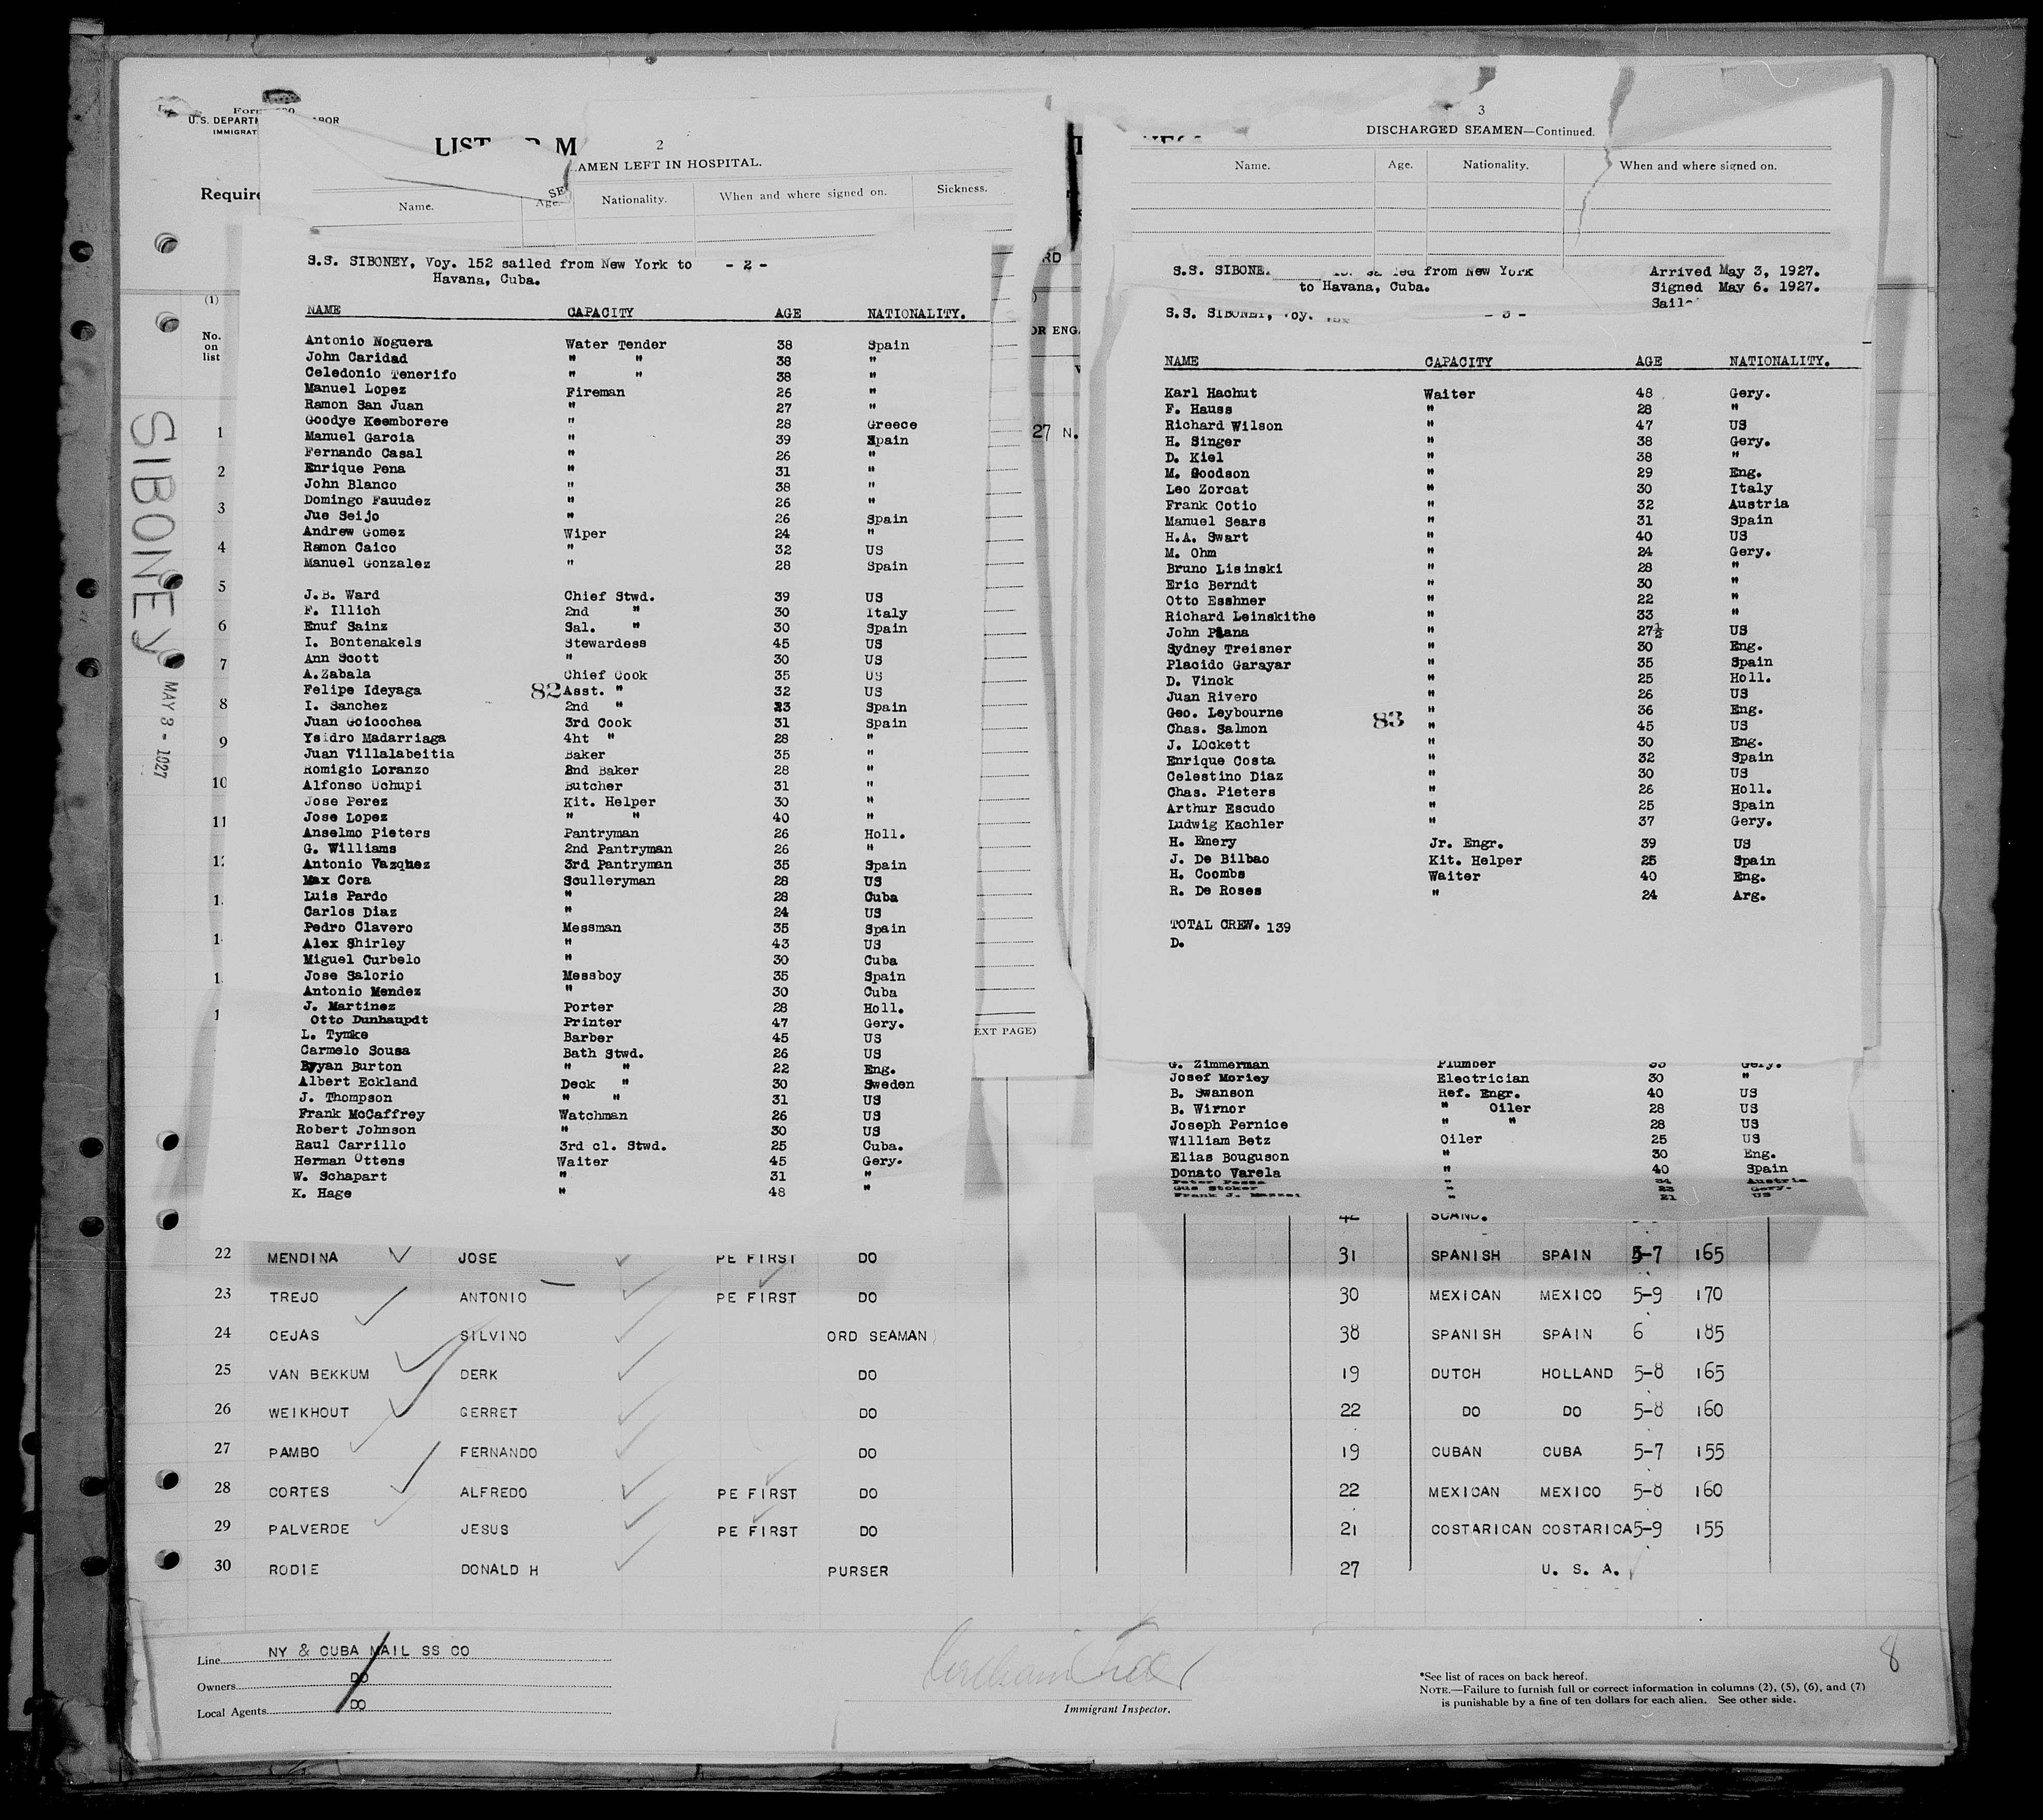 U.S. DEPARTM
ABOR
IMMIGRAT
LIST
M
Require
(1)
No.
on
list
SIBONEY
MAY 3 - 1927
2
AMEN LEFT IN HOSPITAL.
Name. Age. Nationality. When and where signed on. Sickness.
S.S. SIBONEY, Voy. 152 sailed from New York to - 2 -
Havana, Cuba.
NAME CAPACITY AGE NATIONALITY.
Antonio Noguera Water Tender 38 Spain
John Caridad " " 38 "
Celedonio Tenerifo " " 38 "
Manuel Lopez Fireman 26 "
Ramon San Juan " 27 "
Goodye Keemborere " 28 Greece
Manuel Garcia " 39 Spain
Fernando Casal " 26 "
Enrique Pena " 31 "
John Blanco " 38 "
Domingo Fauudez " 26 "
Jue Seijo " 26 Spain
Andrew Gomez Wiper 24 "
Ramon Caico " 32 US
Manuel Gonzalez " 28 Spain
J.B. Ward Chief Stwd. 39 US
F. Illich 2nd " 30 Italy
Enuf Sainz Sal. " 30 Spain
I. Bontenakels Stewardess 45 US
Ann Scott " 30 US
A.Zabala Chief Cook 35 US
Felipe Ideyaga 82 Asst. " 32 US
I. Sanchez 2nd " 23 Spain
Juan Goicochea 3rd Cook 31 Spain
Ysidro Madarriaga 4ht " 28 "
Juan Villalabeitia Baker 35 "
Romigio Loranzo 2nd Baker 28 "
Alfonso Uchupi Butcher 31 "
Jose Perez Kit. Helper 30 "
Jose Lopez " " 40 "
Anselmo Pieters Pantryman 26 Holl.
G. Williams 2nd Pantryman 26 "
Antonio Vazquez 3rd Pantryman 35 Spain
Max Cora Sculleryman 28 US
Luis Pardo " 28 Cuba
Carlos Diaz " 24 US
Pedro Clavero Messman 35 Spain
Alex Shirley " 43 US
Miguel Curbelo " 30 Cuba
Jose Salorio Messboy 35 Spain
Antonio Mendez " 30 Cuba
J. Martinez Porter 28 Holl.
Otto Dunhaupdt Printer 47 Gery.
L. Tymke Barber 45 US
Carmelo Sousa Bath Stwd. 26 US
Bryan Burton " " 22 Eng.
Albert Eckland Deck " 30 Sweden
J. Thompson " " 31 US
Frank McCaffrey Watchman 26 US
Robert Johnson " 30 US
Raul Carrillo 3rd cl. Stwd. 25 Cuba.
Herman Ottens Waiter 45 Gery.
W. Schapart " 31 "
K. Hage " 48 "
1
2
3
4
5
6
7
8
9
10
11
RD
OR ENG.
27 N.
EXT PAGE)
3
DISCHARGED SEAMEN—Continued.
Name. Age. Nationality. When and where signed on.
S.S. SIBONE from New York Arrived May 3, 1927.
to Havana, Cuba. Signed May 6. 1927.
Saile
S.S. SIBONEY, Voy. - 3 -
NAME CAPACITY AGE NATIONALITY.
Karl Hachut Waiter 48 Gery.
F. Hauss " 28 "
Richard Wilson " 47 US
H. Singer " 38 Gery.
D. Kiel " 38 "
M. Goodson " 29 Eng.
Leo Zorcat " 30 Italy
Frank Cotio " 32 Austria
Manuel Sears " 31 Spain
H.A. Swart " 40 US
M. Ohm " 24 Gery.
Bruno Lisinski " 28 "
Eric Berndt " 30 "
Otto Esshner " 22 "
Richard Leinskithe " 33 "
John Plana " 27½ US
Sydney Treisner " 30 Eng.
Placido Garayar " 35 Spain
D. Vinck " 25 Holl.
Juan Rivero " 26 US
Geo. Leybourne " 36 Eng.
Chas. Salmon 83 " 45 US
J. Lockett " 30 Eng.
Enrique Costa " 32 Spain
Celestino Diaz " 30 US
Chas. Pieters " 26 Holl.
Arthur Escudo " 25 Spain
Ludwig Kachler " 37 Gery.
H. Emery Jr. Engr. 39 US
J. De Bilbao Kit. Helper 25 Spain
H. Coombs Waiter 40 Eng.
R. De Roses " 24 Arg.
TOTAL CREW. 139
D.
G. Zimmerman Plumber Gery.
Josef Morley Electrician 30 "
B. Swanson Ref. Engr. 40 US
B. Wirnor " Oiler 28 US
Joseph Pernice " " 28 US
William Betz Oiler 25 US
Elias Bouguson " 30 Eng.
Donato Varela " 40 Spain
" 34 Austria
Gus Stoker " 23 Gery.
Frank J. " 21 US
42 SCAND.
22 MENDINA JOSE PE FIRST DO 31 SPANISH SPAIN 5-7 165
23 TREJO ANTONIO PE FIRST DO 30 MEXICAN MEXICO 5-9 170
24 CEJAS SILVINO ORD SEAMAN 38 SPANISH SPAIN 6 185
25 VAN BEKKUM DERK DO 19 DUTCH HOLLAND 5-8 165
26 WEIKHOUT GERRET DO 22 DO DO 5-8 160
27 PAMBO FERNANDO DO 19 CUBAN CUBA 5-7 155
28 CORTES ALFREDO PE FIRST DO 22 MEXICAN MEXICO 5-8 160
29 PALVERDE JESUS PE FIRST DO 21 COSTARICAN COSTARICA 5-9 155
30 RODIE DONALD H PURSER 27 U. S. A.
Line NY & CUBA MAIL SS CO
Owners DO
Local Agents DO
Immigrant Inspector.
8
*See list of races on back hereof.
NOTE.—Failure to furnish full or correct information in columns (2), (5), (6), and (7)
is punishable by a fine of ten dollars for each alien. See other side.